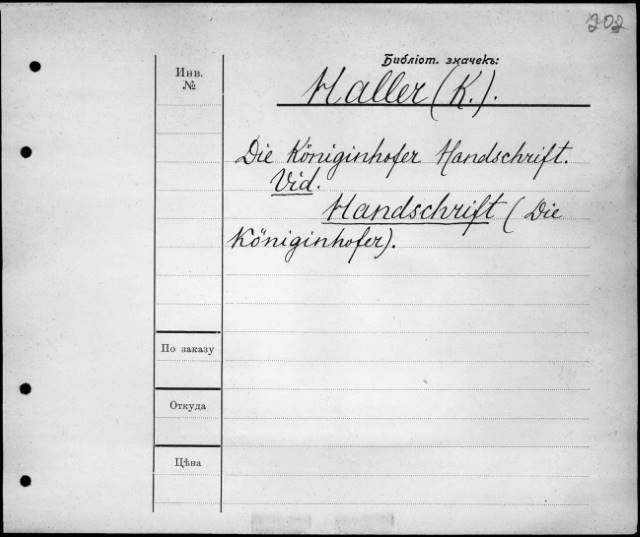 202
Библіот. значекъ:
Инв.
№
Haller (K.).
Die Königinhofer Handschrift.
Vid.
Handschrift (Die
Königinhofer).
По заказу
Откуда
Цѣна